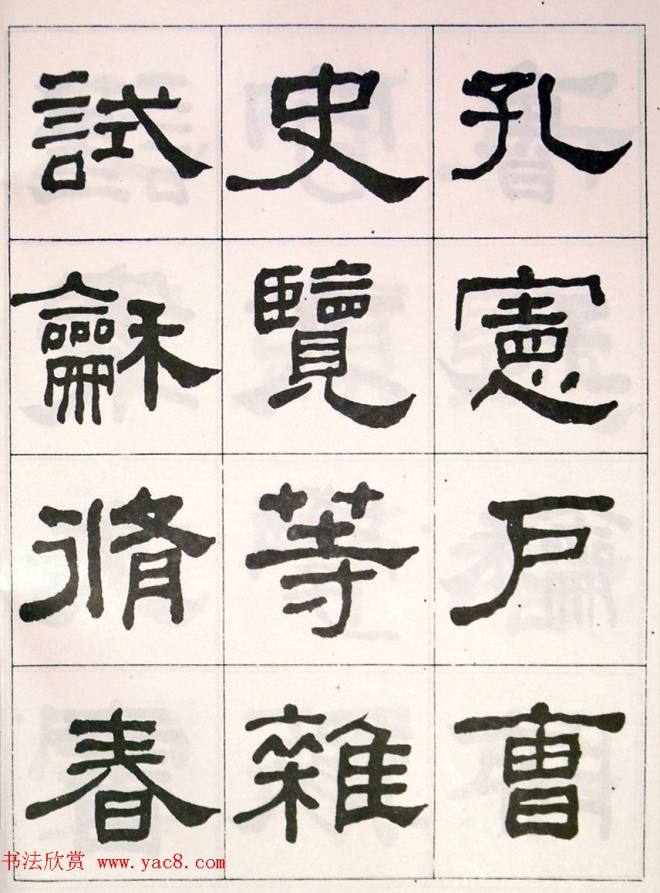 孔憲戶曹
史覽等雜
試龢脩春
书法欣赏 www.yac8.com